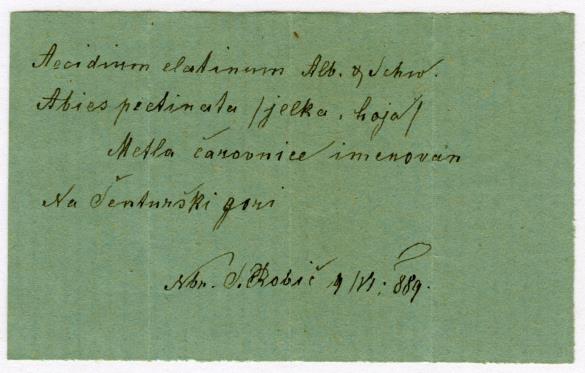 Aecidium elatinum Alb. & Schw.
Abies pectinata /jelka, hoja/
Metla čarovnice imenovan
Na Šenturški gori
Nbr. S. Robič 9/VI. 889.